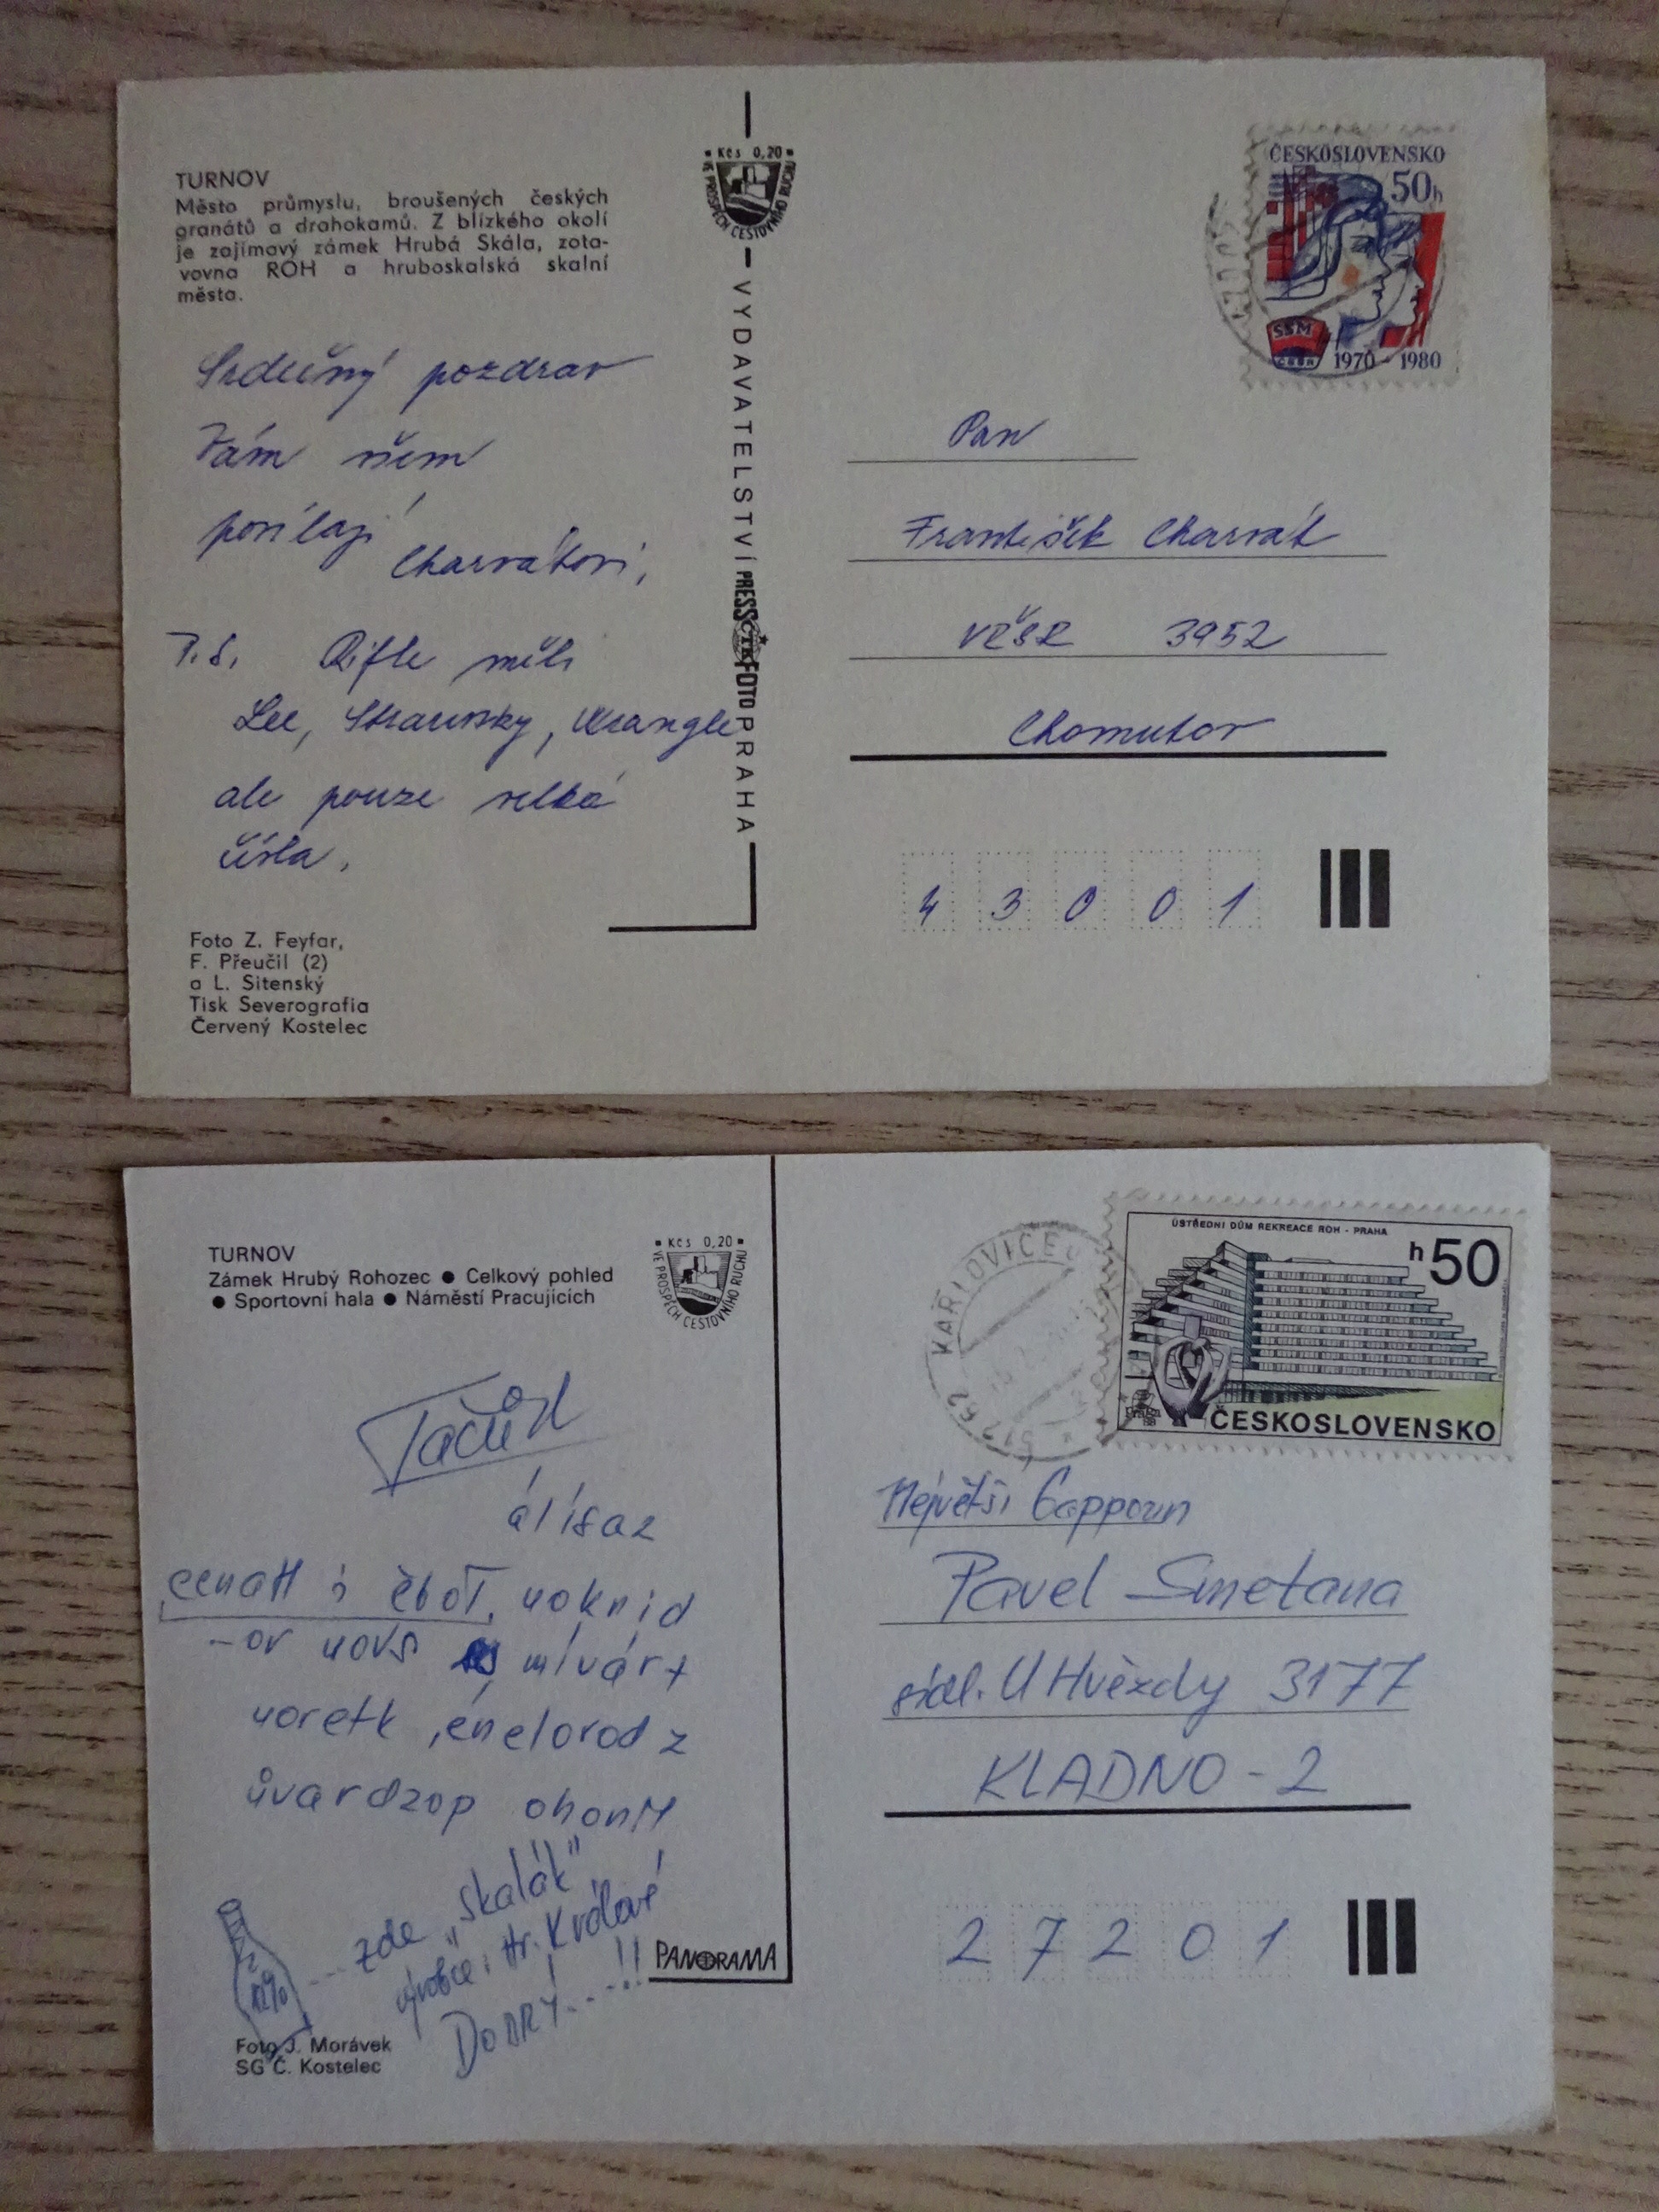 TURNOV
Město průmyslu, broušených českých
granátů a drahokamů. Z blízkého okolí
je zajímavý zámek Hrubá Skála, zota-
vovna ROH a hruboskalská skalní
města.
Kčs 0,20
VE PROSPĚCH CESTOVNÍHO RUCHU
VYDAVATELSTVÍ PRESSFOTO PRAHA
ČTK
ČESKOSLOVENSKO
50h
SSM
1970 - 1980
Srdečný pozdrav
Vám všem
posílají
Charvátovi,
P.S. Rifle měli
Lee, Wrangler
ale pouze velká
čísla.
Pan
František Charvát
VŘSR 3952
Chomutov
43001
Foto Z. Feyfar,
F. Přeučil (2)
a L. Sitenský
Tisk Severografia
Červený Kostelec
TURNOV
Zámek Hrubý Rohozec ● Celkový pohled
● Sportovní hala ● Náměstí Pracujících
Kčs 0,20
VE PROSPĚCH CESTOVNÍHO RUCHU
KARLOVICE
512 62
ÚSTŘEDNÍ DŮM REKREACE ROH - PRAHA
h50
Praga
88
ČESKOSLOVENSKO
álísaz
ěboT, uoknid
-ov uovs mívárt
uoretk ,énelovod z
ůvardzop ohonM
zde „Skalák"
výrobce: Hr. Králové!
DOBRÝ....!!
12%
Největší
Pavel Smetana
sídl. U Hvězdy 3177
KLADNO - 2
27201
PANORAMA
Foto J. Morávek
SG Č. Kostelec